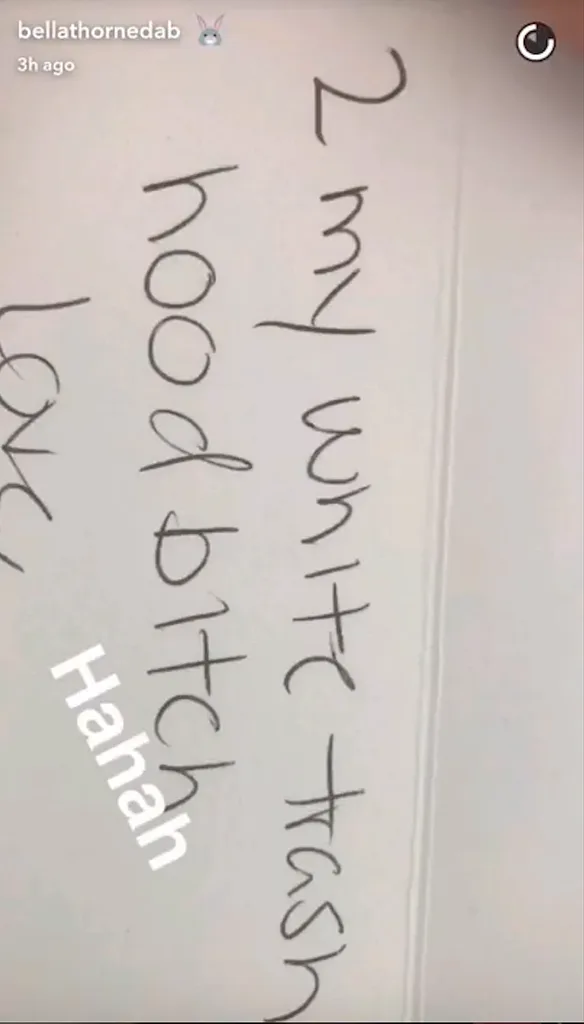 bellathornedab 🐰
3h ago
2 my white trash
hood bitch
Love
Hahah